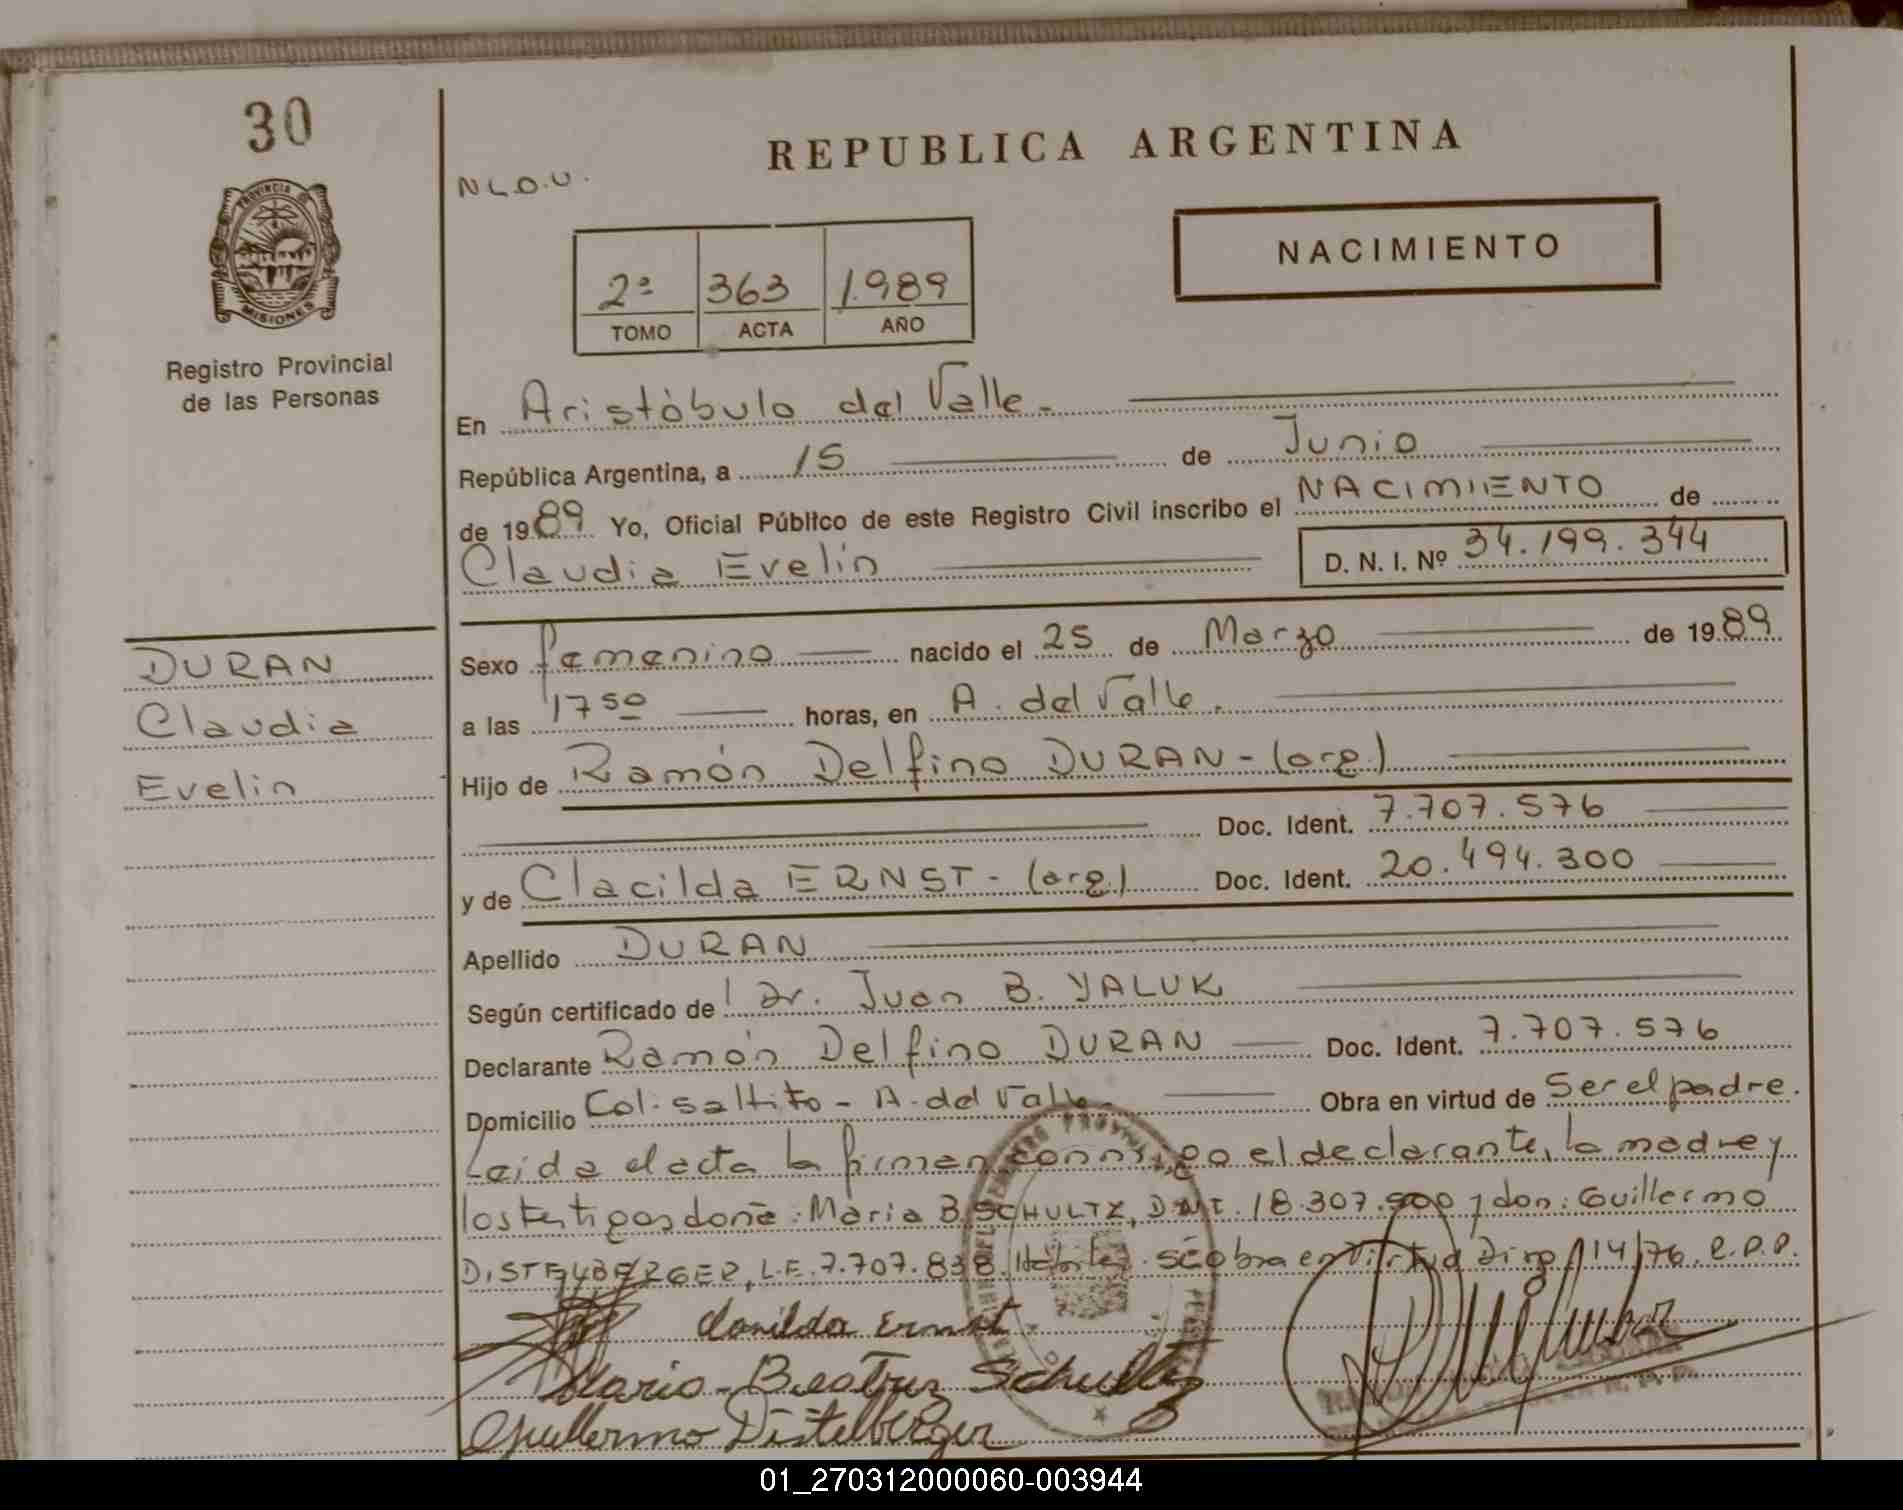 30
PROVINCIA
MISIONES
Registro Provincial
de las Personas
DURAN
Claudia
Evelin
REPUBLICA ARGENTINA
N L D. U.
NACIMIENTO
2ª 363 1.989
TOMO ACTA AÑO
En Aristóbulo del Valle.-
República Argentina, a 15 de Junio
de 1989 Yo, Oficial Público de este Registro Civil inscribo el NACIMIENTO de
Claudia Evelin D. N. I. Nº 34.199.344
Sexo femenino nacido el 25 de Marzo de 1989
a las 17 50 horas, en A. del Valle.
Hijo de Ramón Delfino DURAN - (arg.)
Doc. Ident. 7.707.576
y de Clacilda ERNST - (arg.) Doc. Ident. 20.494.300
Apellido DURAN
Según certificado del Dr. Juan B. YALUK
Declarante Ramón Delfino DURAN Doc. Ident. 7.707.576
Domicilio Col. saltito - A. del Valle- Obra en virtud de Ser el padre.
Leida el acta la firman conmigo el declarante, la madre y
los testigos doña: Maria B. SCHULTZ, DNI. 18.307.900 y don: Guillermo
DISTELBERGER, L.E. 7.707.838. Hábiles. se obra en virtud 114/76. R.P.P.
Clonilda Ernst
Maria - Beatriz Schultz
Guillermo Distelberger
01_270312000060-003944